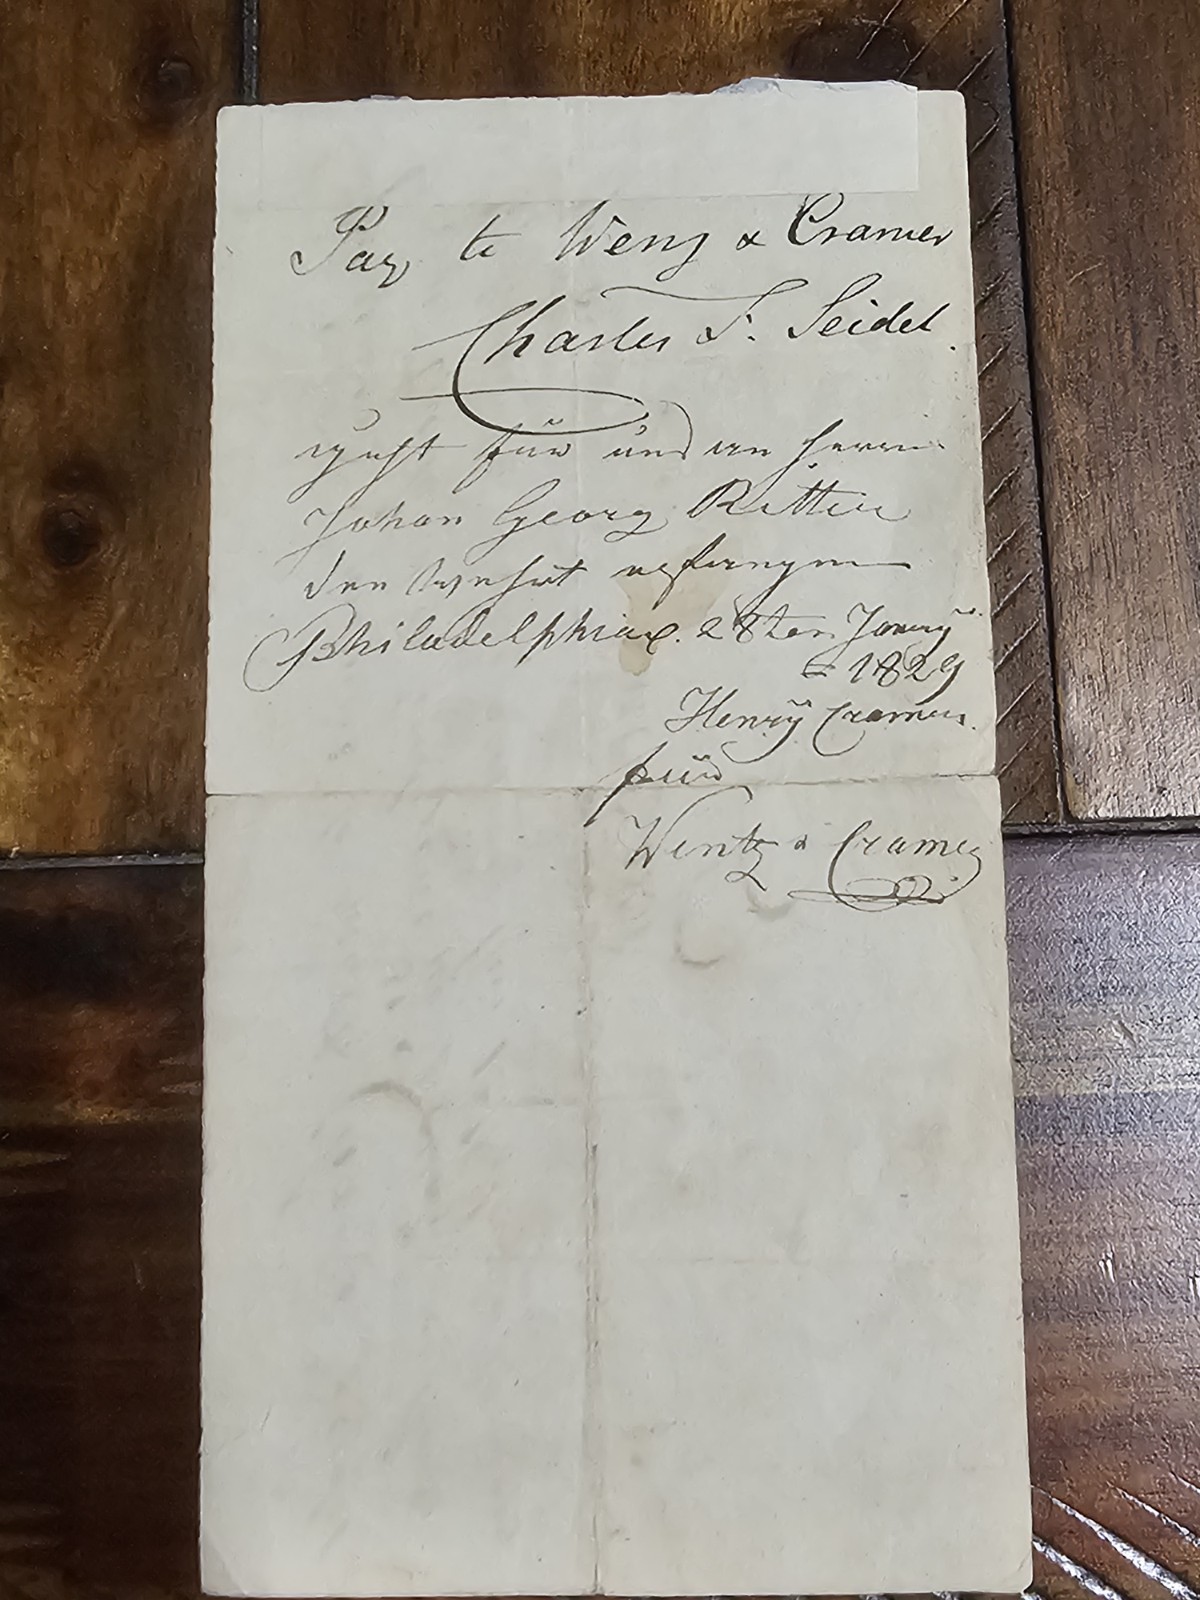 Pay to Weng & Cramer
Charles F. Seidel.
für uns an Herrn
Johan Georg Ritter
den Wehrt
Philadelphia 28ten Janry
1829
Henry Cramer.
für
Wentz & Cramer